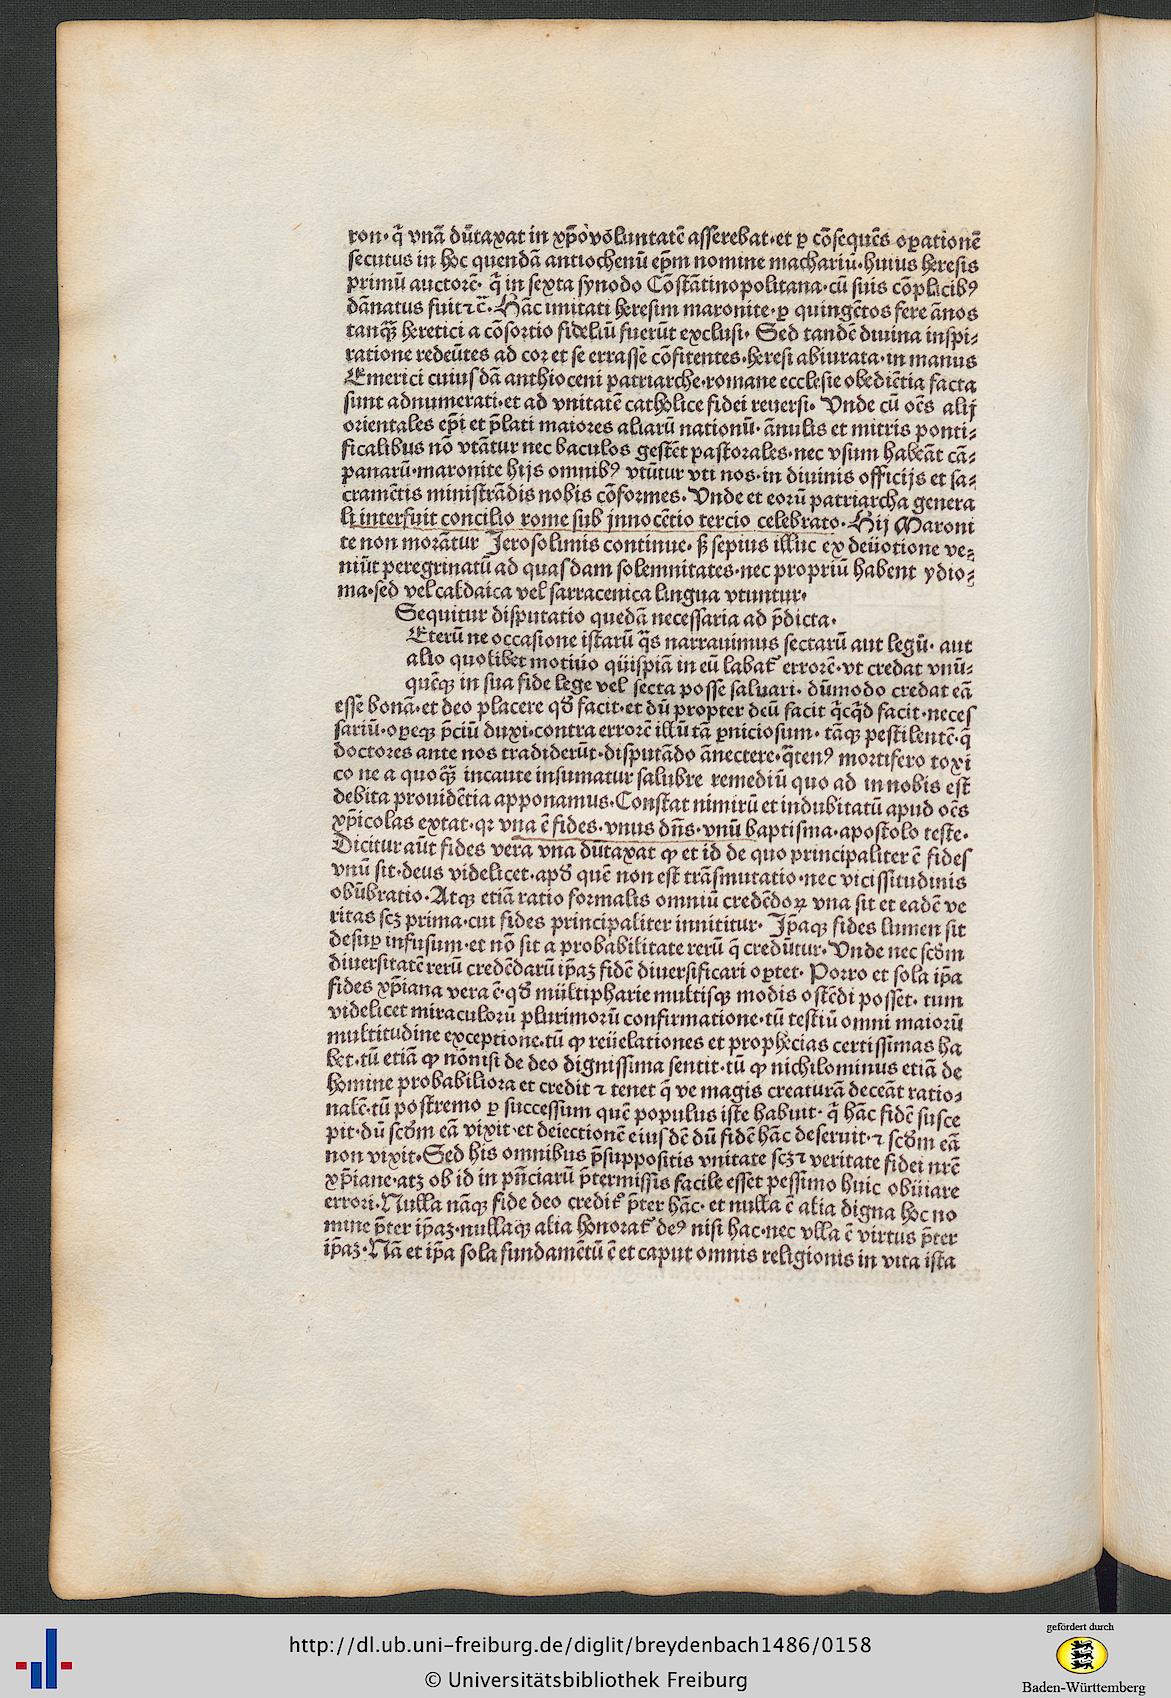 ron· q̄ vnā dūtaxat in xp̄o voluntatē asserebat·et ꝑ cōsequēs oꝑationē
secutus in hoc quendā antiochenū ep̄m nomine machariū·huius heresis
primū auctorē· q̄ in sexta synodo Cōstātinopolitana·cū suis cōplicibꝰ
dānatus fuit ⁊c̄·Hāc imitati heresim maronite·ꝑ quingētos fere ānos
tanqꝫ heretici a cōsortio fideliū fuerūt exclusi· Sed tandē diuina inspi⸗
ratione redeūtes ad cor et se errasse cōfitentes·heresi abiurata·in manus
Emerici cuiusdā anthioceni patriarche·romane ecclesie obediētia facta
sunt adnumerati·et ad vnitatē catholice fidei reuersi· Vnde cū oēs alij
orientales ep̄i et p̄lati maiores aliarū nationū· ānulis et mitris ponti⸗
ficalibus nō vtātur nec baculos gestēt pastorales·nec vsum habeāt cā⸗
panarū·maronite hijs omnibꝰ vtūtur vti nos·in diuinis officijs et sa⸗
cramētis ministrādis nobis cōformes·Vnde et eorū patriarcha genera
li interfuit concilio rome sub jnnocētio tercio celebrato·Hij Maroni
te non morātur Jerosolimis continue· sꝫ sepius illuc ex deuotione ve⸗
niūt peregrinatū ad quasdam solemnitates·nec propriū habent ydio⸗
ma·sed vel caldaica vel sarracenica lingua vtuntur·
Sequitur disputatio quedā necessaria ad p̄dicta·
Eterū ne occasione istarū q̄s narrauimus sectarū aut legū· aut
alio quolibet motiuo quispiā in eū labat᷑ errorē·vt credat vnū⸗
quēqꝫ in sua fide lege vel secta posse saluari· dūmodo credat eā
esse bonā·et deo placere qď facit·et dū propter deū facit q̄cq̄d facit·neces
sariū·oꝑeqꝫ p̄ciū duxi·contra errorē illū tā ꝑniciosum· tāqꝫ pestilentē·q̄
doctores ante nos tradiderūt·disputādo ānectere·q̄tenꝰ mortifero toxi
co ne a quoqꝫ incaute insumatur salubre remediū quo ad in nobis est
debita prouidētia apponamus·Constat nimirū et indubitatū apud oēs
xp̄icolas extat·qꝛ vna ē fides·vnus dn̄s·vnū baptisma·apostolo teste·
Dicitur aūt fides vera vna dūtaxat ꝙ et id de quo principaliter ē fides
vnū sit·deus videlicet·apď quē non est trāsmutatio·nec vicissitudinis
obūbratio·Atqꝫ etiā ratio formalis omniū credēdoꝝ vna sit et eadē ve
ritas scꝫ prima·cui fides principaliter innititur· Ip̄aqꝫ fides lumen sit
desuꝑ infusum·et nō sit a probabilitate rerū q̄ credūtur·Vnde nec scďm
diuersitatē rerū credēdarū ip̄aꝫ fidē diuersificari oꝑtet· Porro et sola ip̄a
fides xp̄iana vera ē·qď multipharie multisqꝫ modis ostēdi posset· tum
videlicet miraculorū plurimorū confirmatione·tū testiū omni maiorū
multitudine exceptione·tū ꝙ reuelationes et prophecias certissimas ha
bet·tū etiā ꝙ nō nisi de deo dignissima sentit·tū ꝙ nichilominus etiā de
homine probabiliora et credit ⁊ tenet q̄ ve magis creaturā deceāt ratio⸗
nalē·tū postremo ꝑ successum quē populus iste habuit· q̄ hāc fidē susce
pit·dū scďm eā vixit·et deiectionē eiusdē dū fidē hāc deseruit·⁊ scďm eā
non vixit·Sed his omnibus p̄suppositis vnitate scꝫ ⁊ veritate fidei nr̄e
xp̄iane·atꝫ ob id in pn̄ciarū p̄termissis facile esset pessimo huic obuiare
errori·Nulla nāqꝫ fide deo credit᷑ p̄ter hāc· et nulla ē alia digna hoc no
mine p̄ter ip̄aꝫ·nullaqꝫ alia honorat᷑ deꝰ nisi hac·nec vlla ē virtus p̄ter
ip̄aꝫ·Nā et ip̄a sola fundamētū ē et caput omnis religionis in vita ista
http://dl.ub.uni-freiburg.de/diglit/breydenbach1486/0158
© Universitätsbibliothek Freiburg
gefördert durch
Baden-Württemberg